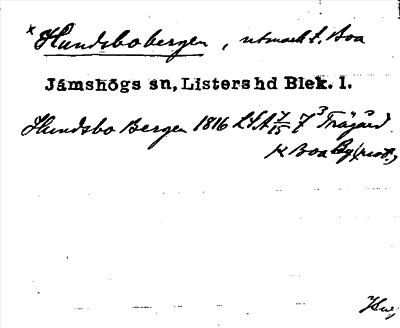 *Hundsbobergen, utmark t. Boa
Jämshögs sn, Listers hd Blek. l.
Hundsbo Bergen 1816 LSA 7/15 7 3 Trägård
K Boa By